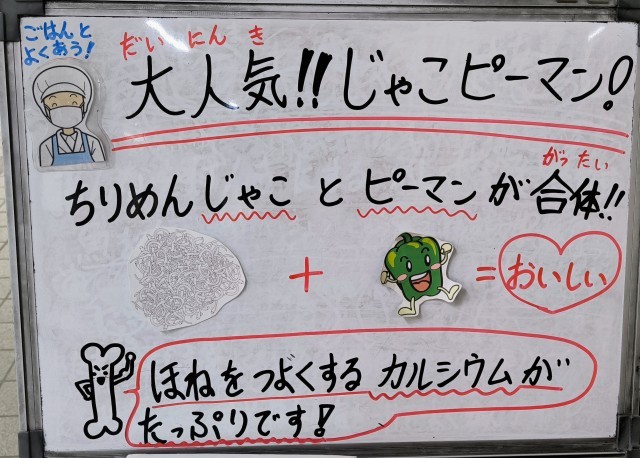 ごはんと
よくあう!
だいにんき
大人気!!じゃこピーマン!
がったい
ちりめんじゃことピーマンが合体!!
+ = おいしい
ほねをつよくするカルシウムが
たっぷりです!